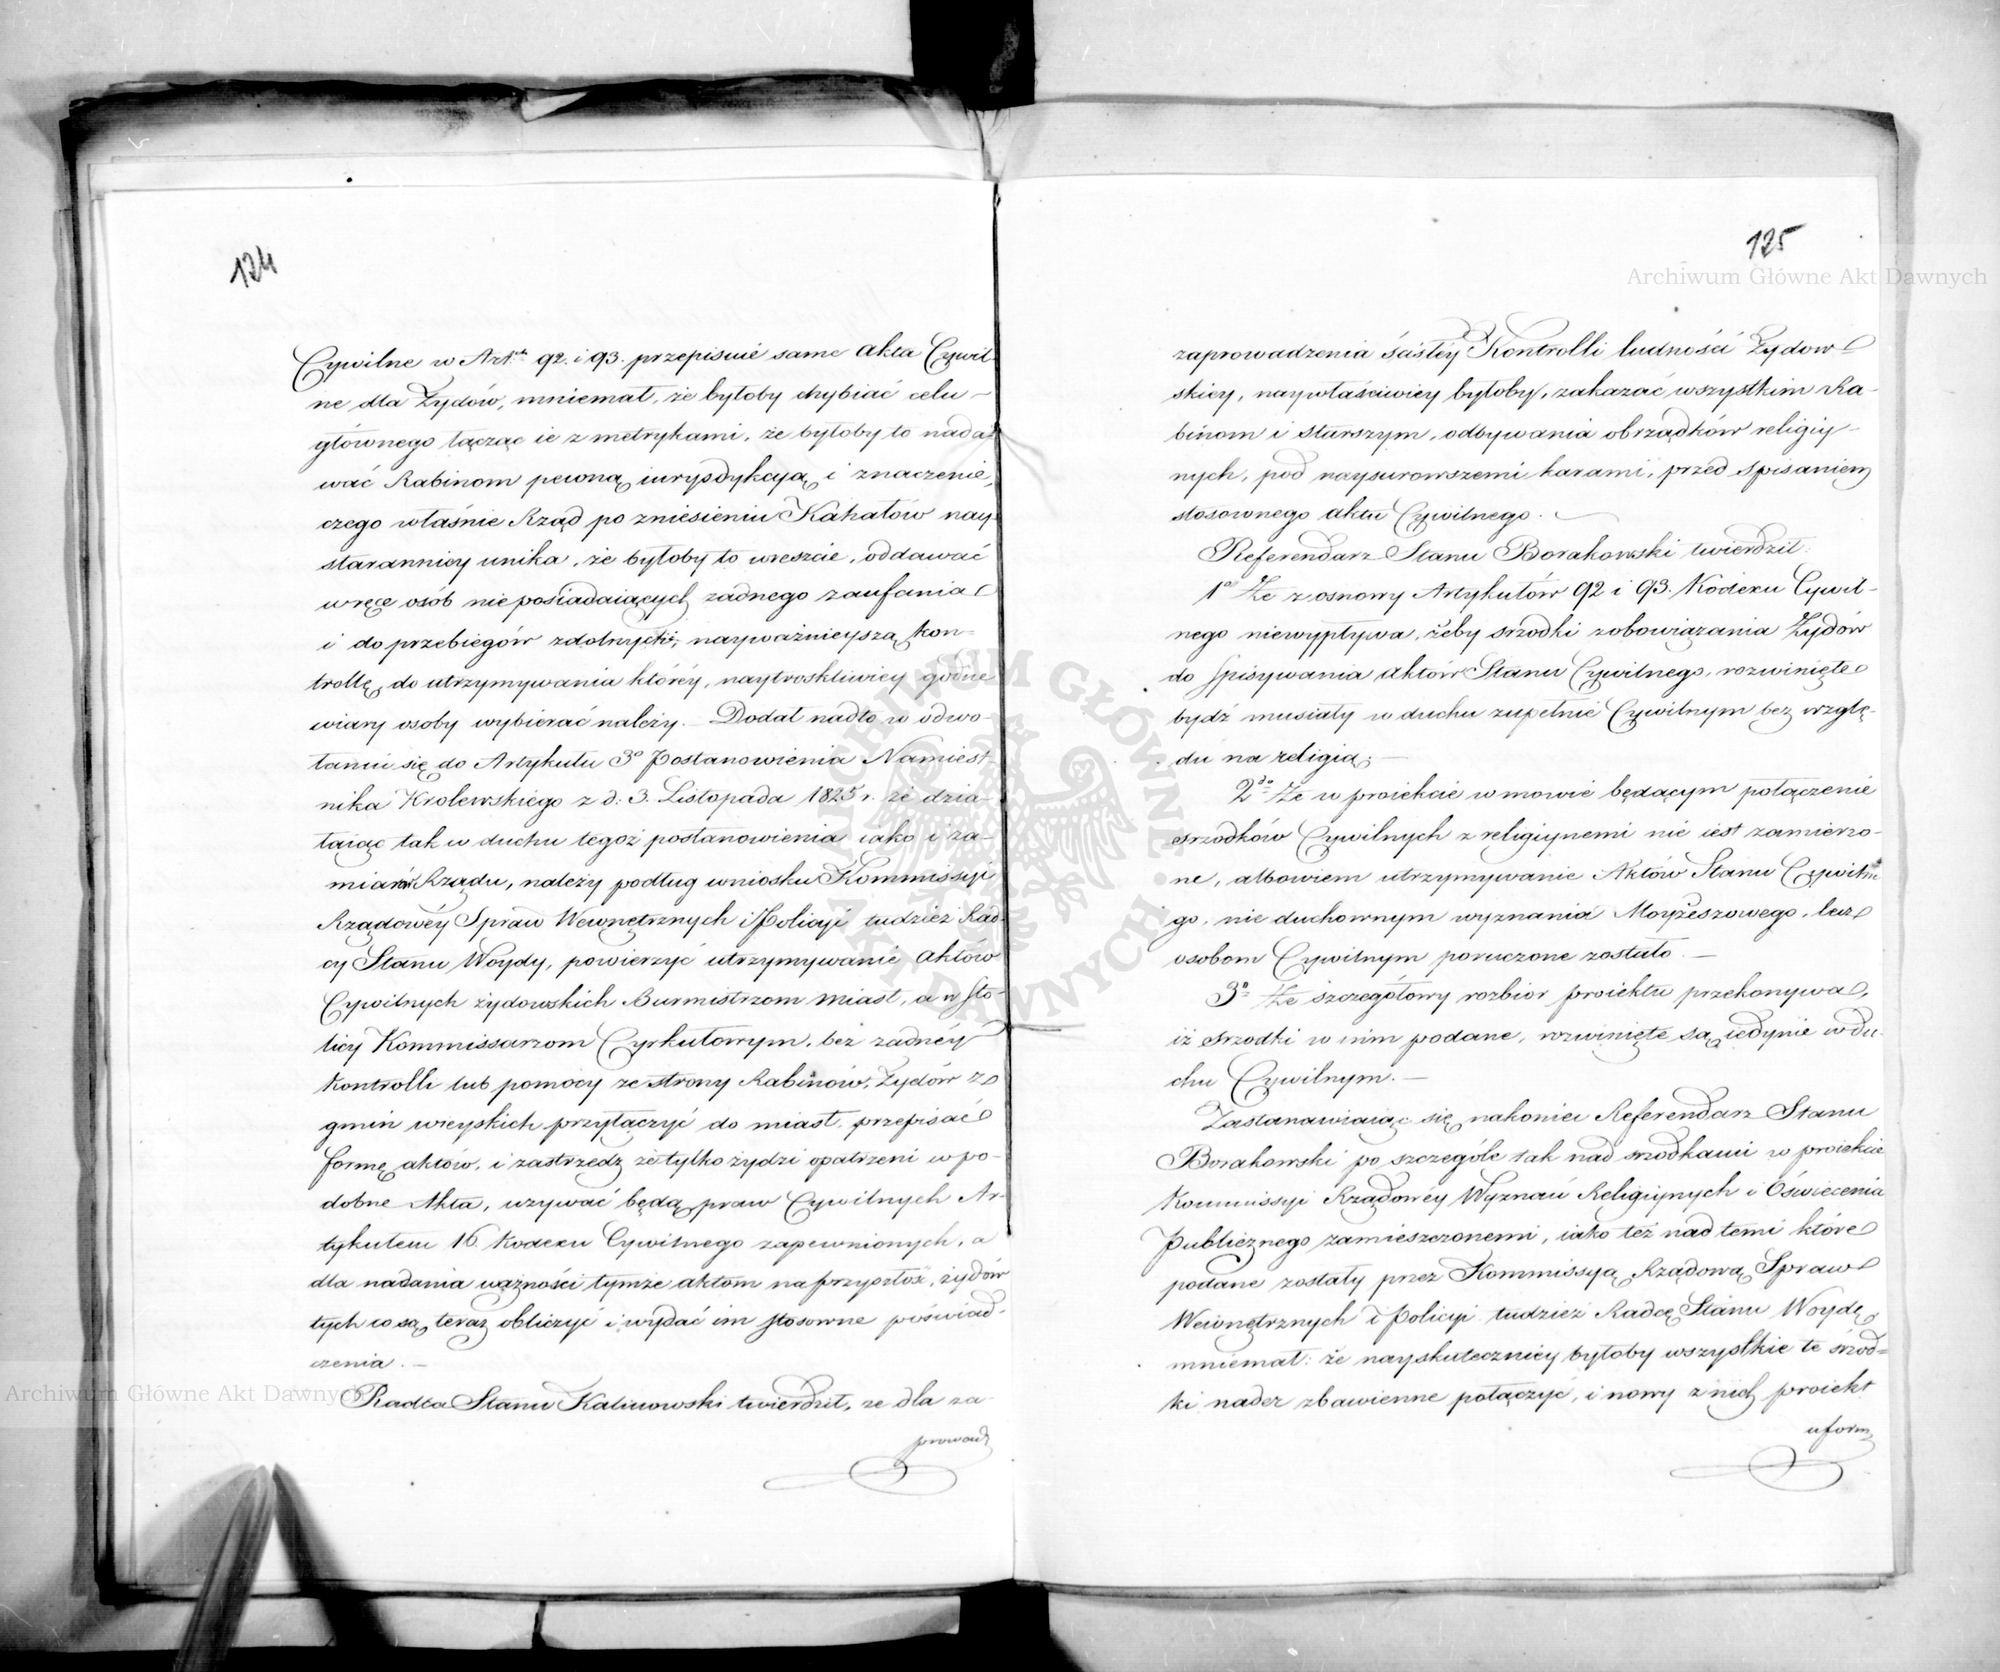 124
Cywilne w Art. 92. i 93. przepisuie same akta Cywil-
ne dla Żydów, mniemał, że byłoby chybiać celu
głównego łącząc ie z metrykami, że byłoby to nada-
wać Rabinom pewną iurysdykcyą i znaczenie,
czego właśnie Rząd po zniesieniu Kahałów nay-
staranniey unika, że byłoby to wreszcie, oddawać
w ręce osób nieposiadaiących żadnego zaufania
i do przebiegów zdolnych, nayważnieyszą kon-
trollę, do utrzymywania któréy, naytroskliwiey godne
wiary osoby wybierać należy. – Dodał nadto w odwo-
łaniu się do Artykułu 3º Postanowienia Namiest-
nika Krolewskiego z d: 3. Listopada 1825 r. że dzia-
łaiąc tak w duchu tegoż postanowienia iako i za-
miarów Rządu, należy podług wniosku Kommissyi
Rządowéy Spraw Wewnętrznych i Policyi tudzież Rad-
cy Stanu Woydy, powierzyć utrzymywanie aktów
Cywilnych żydowskich Burmistrzom miast, a w sto-
licy Kommissarzom Cyrkułowym, bez żadnéy
Kontrolli lub pomocy ze strony Rabinów, Żydów z
gmin wieyskich przyłączyć do miast, przepisać
formę aktów, i zastrzedz że tylko żydzi opatrzeni w po-
dobne Akta, używać będą praw Cywilnych Ar-
tykułem 16. Kodexu Cywilnego zapewnionych, a
dla nadania ważności tymże aktom na przyszłość, żydów
tych co są teraz obliczyć i wydać im stosowne poświad-
czenia. –
Radca Stanu Kalinowski twierdził, że dla za
prowadz
125
zaprowadzenia ścisłéy Kontrolli ludności Żydow-
skiey, naywłaściwiey byłoby, zakazać wszystkim Ra-
binom i starszym, odbywania obrządków religiy-
nych, pod naysurowszemi karami, przed spisaniem
stosownego aktu Cywilnego. –
Referendarz Stanu Borakowski twierdził:
1º Że z osnowy Artykułów 92 i 93. Kodexu Cywil-
nego niewypływa, żeby srzodki zobowiązania Żydów
do spisywania aktów Stanu Cywilnego, rozwinięte
bydź musiały w duchu zupełnie Cywilnym bez wzglę-
du na religią; –
2do Że w proiekcie w mowie będącym połączenie
srzodków Cywilnych z religiynemi nie iest zamierzo-
ne, albowiem utrzymywanie Aktów Stanu Cywilne
go, nie duchownym wyznania Moyżeszowego, lecz
osobom Cywilnym poruczone zostało. –
3º Że szczegółowy rozbiór proiektu przekonywa,
iż srzodki w nim podane, rozwinięte są iedynie w du-
chu Cywilnym. –
Zastanawiaiąc się nakoniec Referendarz Stanu
Borakowski po szczególe tak nad srzodkami w proiekcie
Kommissyi Rządowéy Wyznań Religiynych i Oświecenia
Publicznego zamieszczonemi, iako też nad temi które
podane zostały przez Kommissyą Rządową Spraw
Wewnętrznych i Policyi tudzież Radcę Stanu Woydę
mniemał: że nayskuteczniey byłoby wszystkie te srzod-
ki nader zbawienne połączyć, i nowy z nich proiekt
uform
Archiwum Główne Akt Dawnych
Archiwum Główne Akt Dawnych
ARCHIWUM GŁÓWNE AKT DAWNYCH